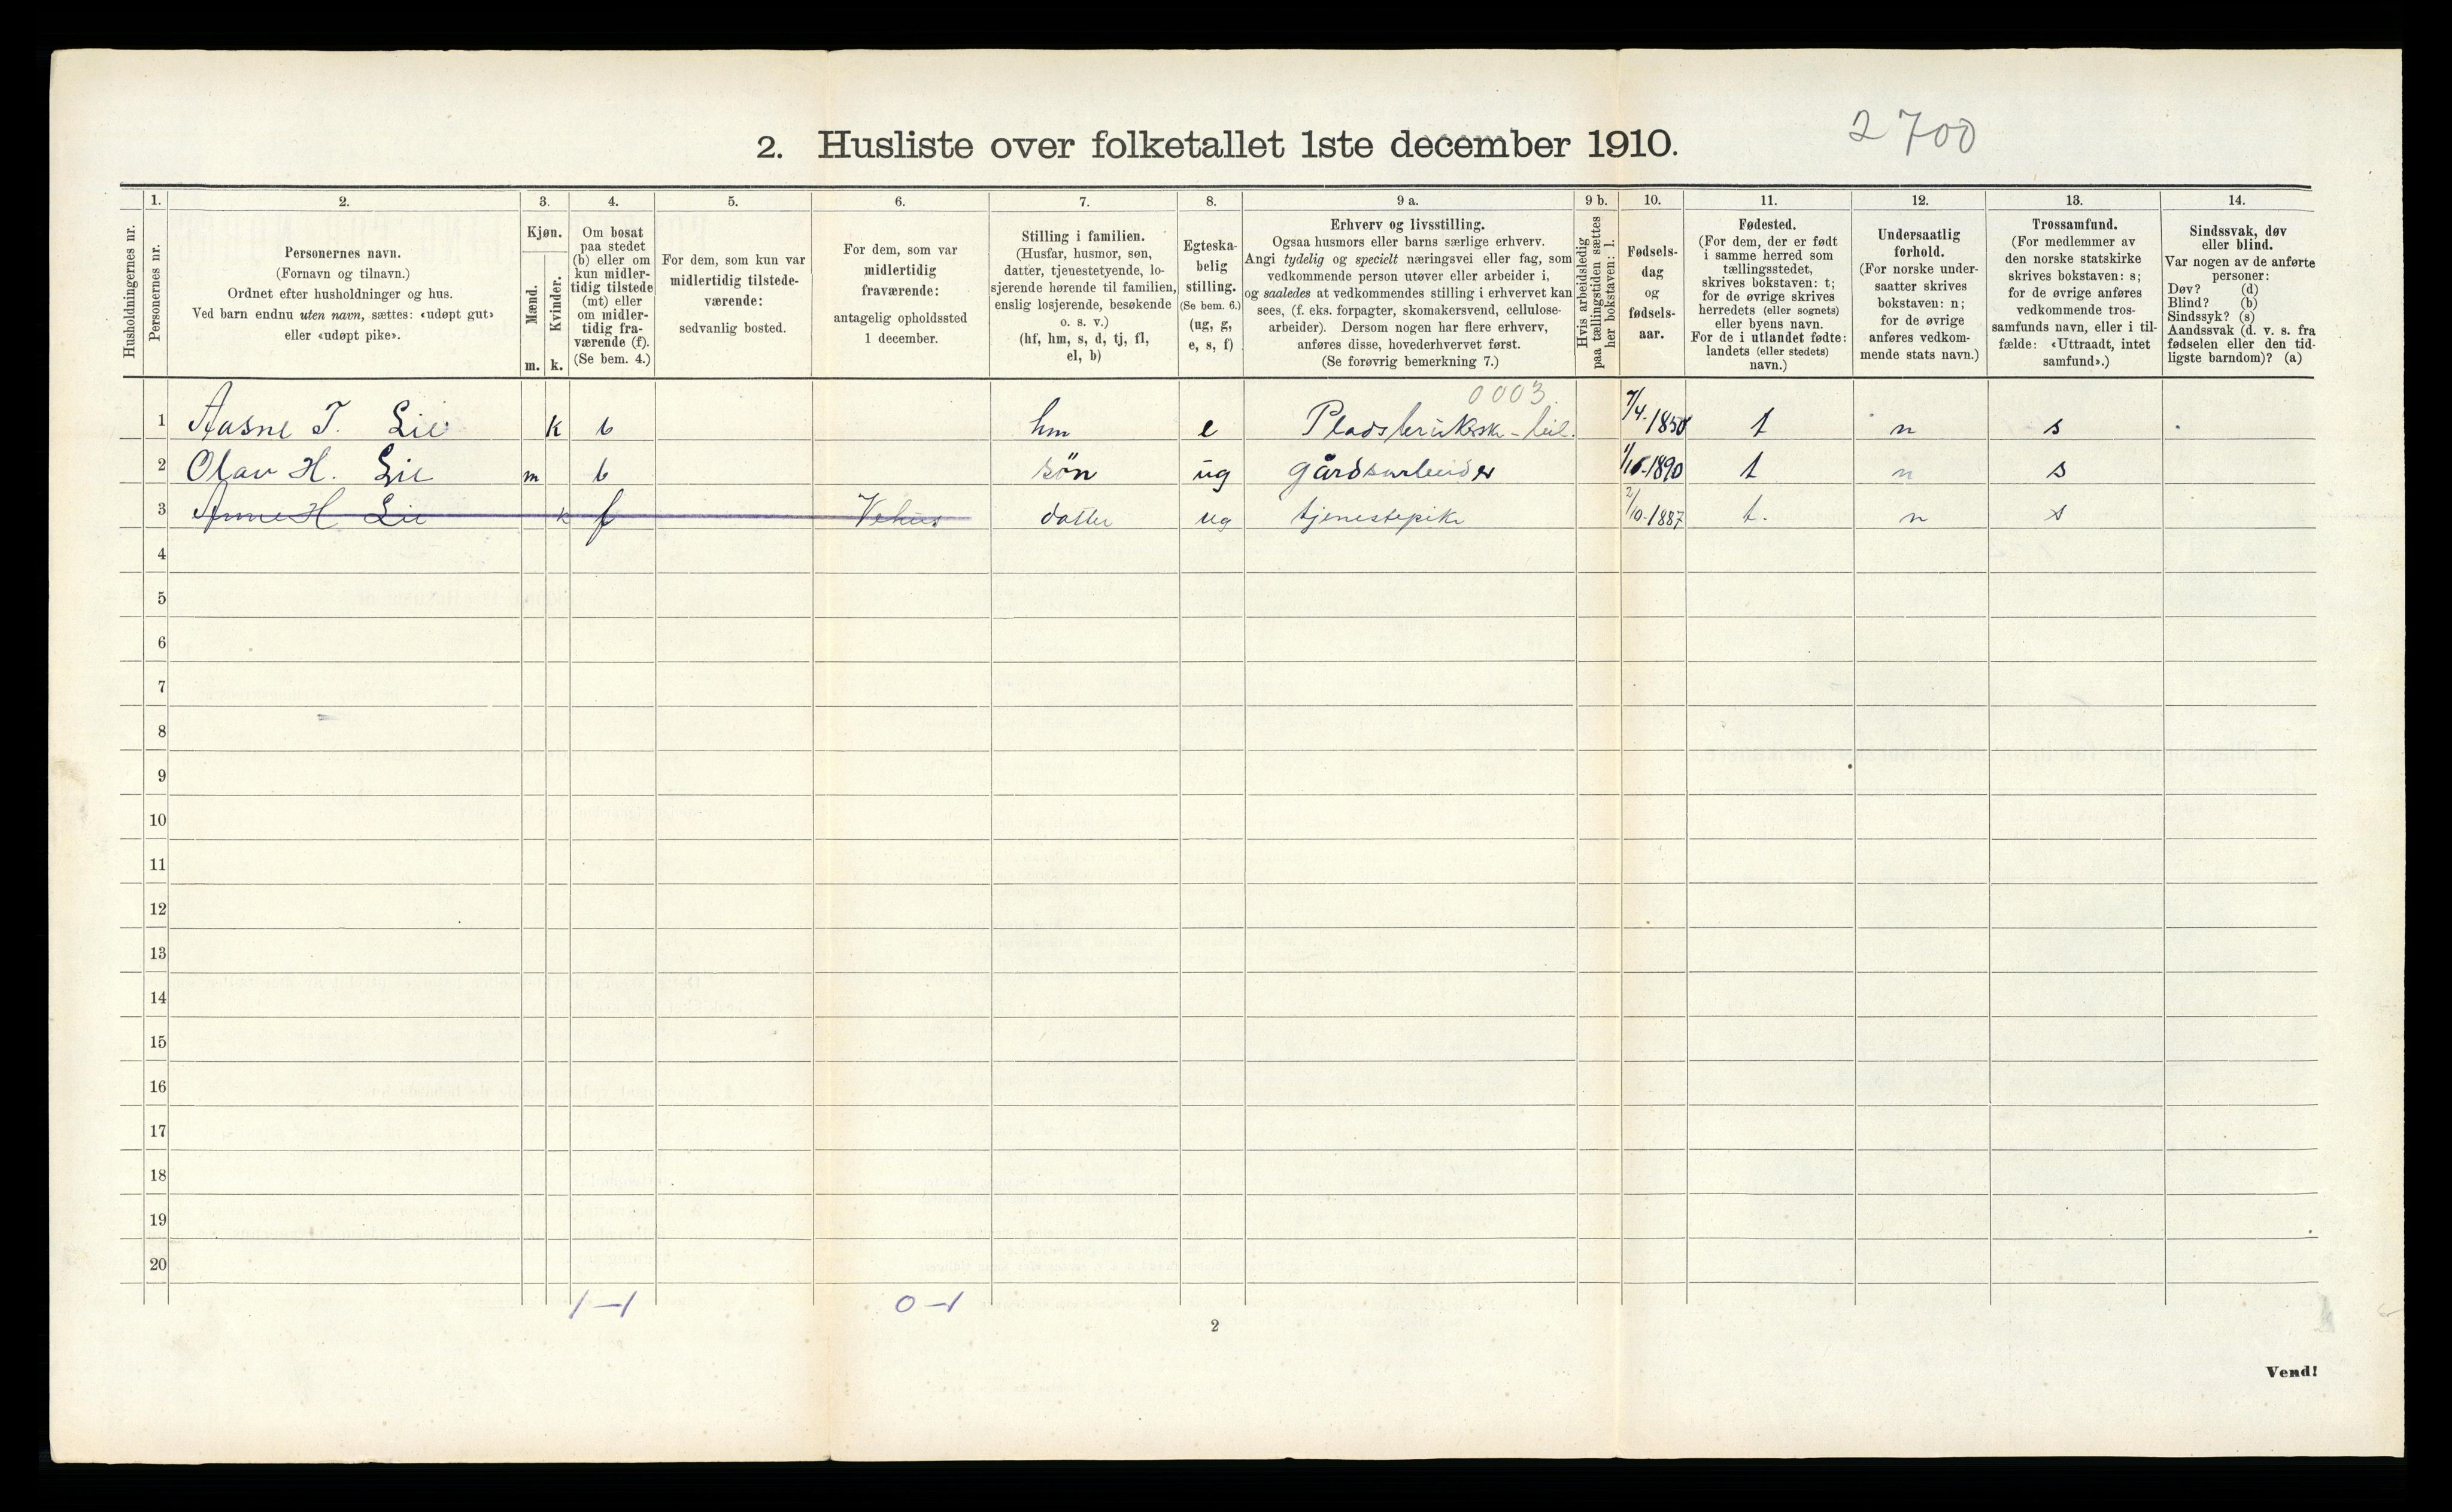 2. Husliste over folketallet 1ste december 1910.
2700
1. 2. 3. 4. 5. 6. 7. 8. 9 a. 9 b. 10. 11. 12. 13. 14.
Husholdningernes nr.
Personernes nr.
Personernes navn.
(Fornavn og tilnavn.)
Ordnet efter husholdninger og hus.
Ved barn endnu uten navn, sættes: «udøpt gut»
eller «udøpt pike».
Kjøn.
Mænd.
Kvinder.
m. k.
Om bosat
paa stedet
(b) eller om
kun midler-
tidig tilstede
(mt) eller
om midler-
tidig fra-
værende (f).
(Se bem. 4.)
For dem, som kun var
midlertidig tilstede-
værende:
sedvanlig bosted.
For dem, som var
midlertidig
fraværende:
antagelig opholdssted
1 december.
Stilling i familien.
(Husfar, husmor, søn,
datter, tjenestetyende, lo-
sjerende hørende til familien,
enslig losjerende, besøkende
o. s. v.)
(hf, hm, s, d, tj, fl,
el, b)
Egteska-
belig
stilling.
(Se bem. 6.)
(ug, g,
e, s, f)
Erhverv og livsstilling.
Ogsaa husmors eller barns særlige erhverv.
Angi tydelig og specielt næringsvei eller fag, som
vedkommende person utøver eller arbeider i,
og saaledes at vedkommendes stilling i erhvervet kan
sees, (f. eks. forpagter, skomakersvend, cellulose-
arbeider). Dersom nogen har flere erhverv,
anføres disse, hovederhvervet først.
(Se forøvrig bemerkning 7.)
Hvis arbeidsledig
paa tællingstiden sættes
her bokstaven: l.
Fødsels-
dag
og
fødsels-
aar.
Fødested.
(For dem, der er født
i samme herred som
tællingsstedet,
skrives bokstaven: t;
for de øvrige skrives
herredets (eller sognets)
eller byens navn.
For de i utlandet fødte:
landets (eller stedets)
navn.)
Undersaatlig
forhold.
(For norske under-
saatter skrives
bokstaven: n;
for de øvrige
anføres vedkom-
mende stats navn.)
Trossamfund.
(For medlemmer av
den norske statskirke
skrives bokstaven: s;
for de øvrige anføres
vedkommende tros-
samfunds navn, eller i til-
fælde: «Uttraadt, intet
samfund».)
Sindssvak, døv
eller blind.
Var nogen av de anførte
personer:
Døv? (d)
Blind? (b)
Sindssyk? (s)
Aandssvak (d. v. s. fra
fødselen eller den tid-
ligste barndom)? (a)
0003.
1 Aasne T. Lie k b hm e 7/4-1850 t n s
2 Olav H. Lie m b søn ug gårdsarbeider 1890 t n s
3 Anne H Lie k f Vehus datter ug tjenestepike 2/10-1887 t. n s
4
5
6
7
8
9
10
11
12
13
14
15
16
17
18
19
20
1-1 0-1
2
Vend!